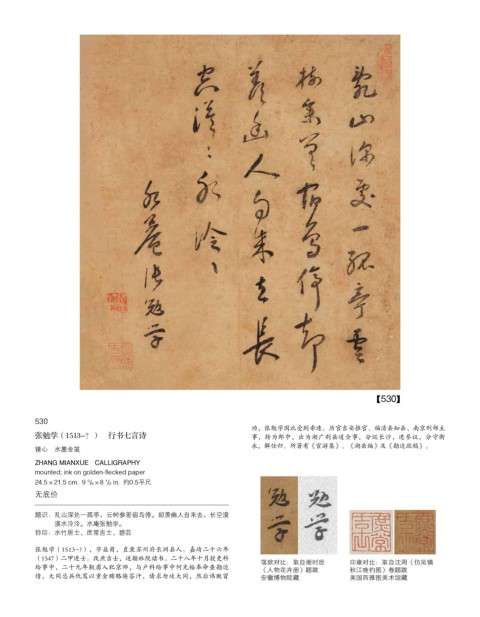 乱山深处一孤亭云
树参差宿鸟停却
羡幽人自来去长
空漠〻水泠〻
水庵张勉学
【530】
530
张勉学（1513-？） 行书七言诗
镜心 水墨金笺
ZHANG MIANXUE CALLIGRAPHY
mounted; ink on golden-flecked paper
24.5×21.5 cm. 9 5/8×8 1/2 in. 约0.5平尺
无底价
题识：乱山深处一孤亭，云树参差宿鸟停。却羡幽人自来去，长空漠
漠水泠泠。水庵张勉学。
钤印：水竹居士、庶常吉士、碧芸
张勉学（1513-？），字益甫，直隶苏州府长洲县人。嘉靖二十六年
（1547）二甲进士。改庶吉士，进翰林院读书。二十八年十月授吏科
给事中，二十九年鞑虏入犯京师，与户科给事中何光裕奉命查勘边
情，大同总兵仇鸾以重金贿赂勉答汗，请求勿攻大同，然后伪败冒
功，张勉学因此受到牵连。历官吉安推官、福清县知县、南京刑部主
事，转为郎中，出为湖广则佥道佥事，分巡长沙，进参议，分守衡
永，解任归。所著有《宦游集》、《湖南稿》及《勘边疏稿》。
勉学
勉学
落款对比：取自谢时臣
《人物花卉册》题跋
安徽博物院藏
印章对比：取自沈周《仿吴镇
秋江晚钓图》卷题跋
美国西雅图美术馆藏